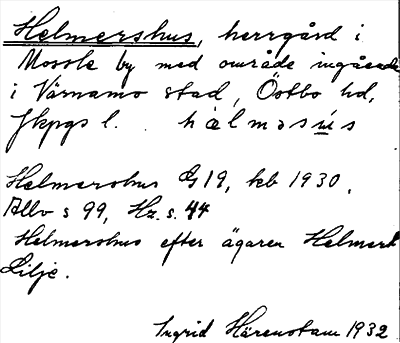 Helmershus, herrgård i
Mossle by med område ingående
i Värnamo stad, Östbo hd,
Jkpgs l. hælməsu̲s
Helmershus G19, kb 1930.
Allv s 99, Hz. s. 44
Helmershus efter ägaren Helmer
Lilje.
Ingrid Härenstam 1932